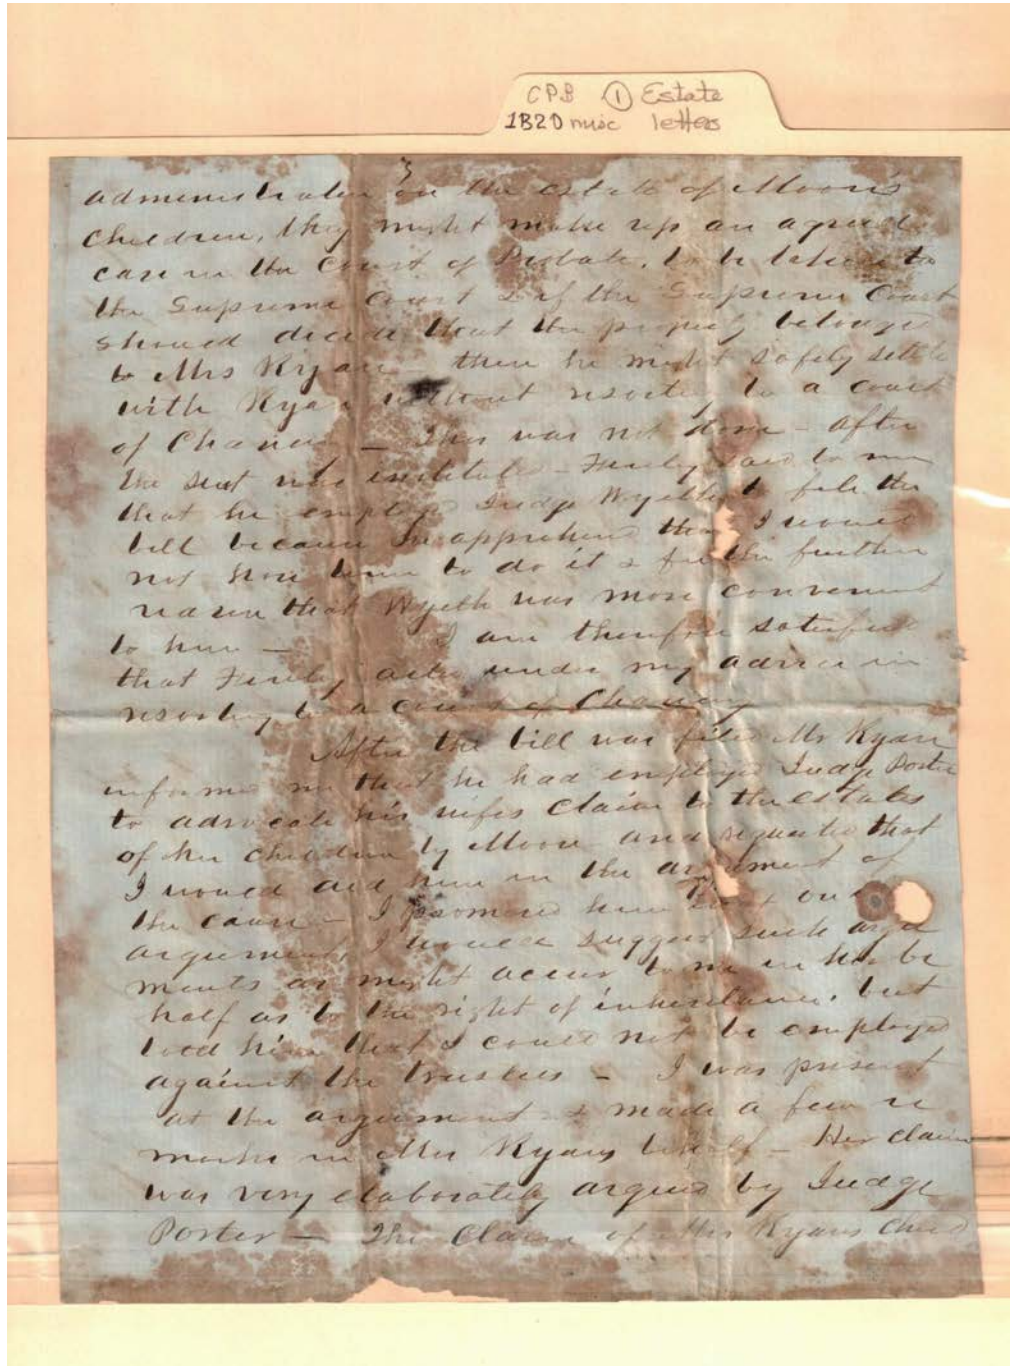 CPB ① Estate
1B20 misc letters
3
administration on the estate of Moore's
children, they might make up an agreed
case in the Court of Probate, to be taken to
the Supreme Court & if the Supreme Court
should decide that the property belonged
to Mrs Ryan — then he might safely settle
with Ryan without resorting to a court
of Chancery — This was not done — After
the suit was instituted — said to me
that he employed Judge Wyeth to file the
bill because he apprehend that I would
not have time to do it & for the further
reason that Wyeth was more convenient
to him — I am therefore satisfied
that acted under my advice in
resorting to a Court of Chancery
After the bill was filed Mr Ryan
informed me that he had employed Judge Porter
to advocate his wifes claim to the estates
of her children by Moore and requested that
I would aid him in the argument of
the cause — I promised him that on
argument, I would suggest such argu
ments as might occur to me in her be
half as to the right of inheritance, but
told him that I could not be employed
against the trustees — I was present
at the argument & made a few re
marks in Mrs Ryans behalf — Her claim
was very elaborately argued by Judge
Porter — The Claim of Mrs Ryans Child